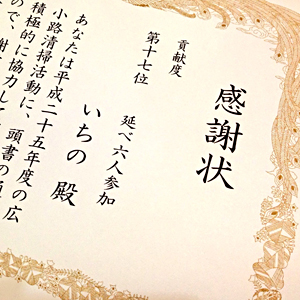 感謝状
貢献度
第十七位
延べ六人参加
いちの 殿
あなたは平成二十五年度の広
小路清掃活動に、頭書の
積極的に協力して
ので、謝